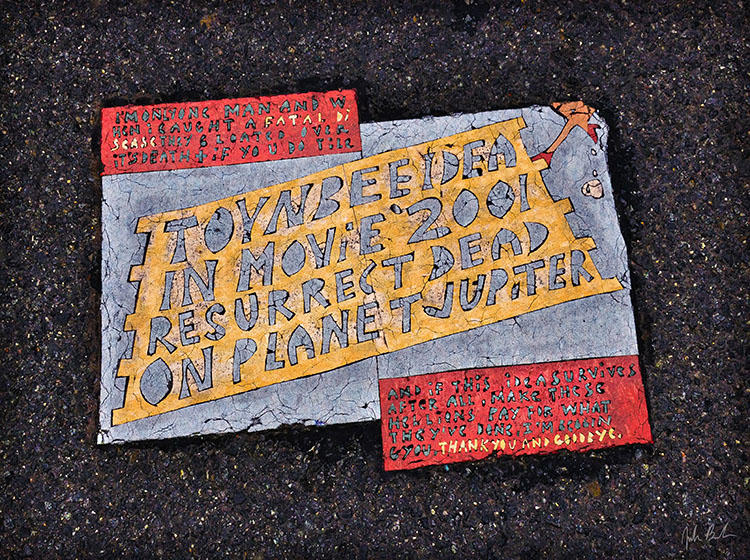 I'M ONLY ONE MAN AND W
HEN I CAUGHT A FATAL DI
SEASE THEY GLOATED OVER
ITS DEATH & IF YOU DO
TOYNBEE IDEA
IN MOVIE '2001
RESURRECT DEAD
ON PLANET JUPITER
AND IF THIS IDEA SURVIVES
AFTER ALL, MAKE THESE
HELLIONS PAY FOR WHAT
THEY'VE DONE. I'M
G YOU. THANK YOU AND GOODBYE.